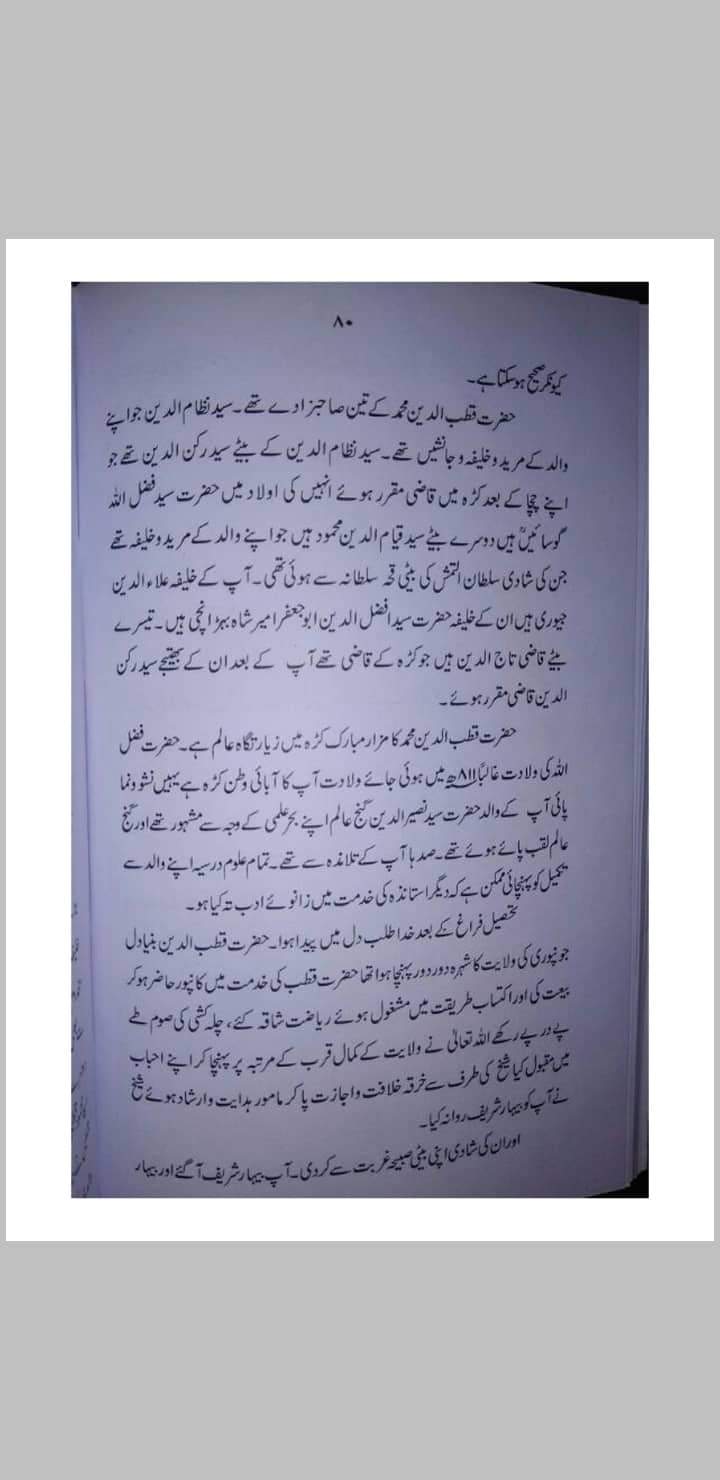 ۸۰
کیونکر صحیح ہو سکتا ہے۔
حضرت قطب الدین محمد کے تین صاحبزادے تھے۔ سید نظام الدین جو اپنے
والد کے مرید و خلیفہ و جانشیں تھے۔ سید نظام الدین کے بیٹے سید رکن الدین تھے جو
اپنے چچا کے بعد کڑہ میں قاضی مقرر ہوئے انہیں کی اولاد میں حضرت سید فضل اللہ
گوسائیںؒ ہیں دوسرے بیٹے سید قیام الدین محمود ہیں جو اپنے والد کے مرید و خلیفہ تھے
جن کی شادی سلطان التمش کی بیٹی سلطانہ سے ہوئی تھی۔ آپ کے خلیفہ علاء الدین
جیوری ہیں ان کے خلیفہ حضرت سید افضل الدین ابو جعفر امیر شاہ بہڑائچی ہیں۔ تیسرے
بیٹے قاضی تاج الدین ہیں جو کڑہ کے قاضی تھے آپ کے بعد ان کے بھتیجے سید رکن
الدین قاضی مقرر ہوئے۔
حضرت قطب الدین محمد کا مزار مبارک کڑہ میں زیارتگاہ عالم ہے۔ حضرت فضل
اللہ کی ولادت غالباً ۸۱۱ھ میں ہوئی جائے ولادت آپ کا آبائی وطن کڑہ ہے یہیں نشوونما
پائی آپ کے والد حضرت سید نصیر الدین گنج عالم اپنے بحر علمی کے وجہ سے مشہور تھے اور گنج
عالم لقب پائے ہوئے تھے۔ صدہا آپ کے تلامذہ سے تھے۔ تمام علوم درسیہ اپنے والد سے
تکمیل کو پہنچائی ممکن ہے کہ دیگر استاندہ کی خدمت میں زانوئے ادب تہ کیا ہو۔
تحصیل فراغ کے بعد خدا طلب دل میں پیدا ہوا۔ حضرت قطب الدین بنیادل
جونپوری کی ولایت کا شہرہ دور دور پہنچا ہوا تھا حضرت قطب کی خدمت میں کانپور حاضر ہوکر
بیعت کی اور اکتساب طریقت میں مشغول ہوئے ریاضت شاقہ کئے، چلہ کشی کی صوم طے
پے در پے رکھے اللہ تعالیٰ نے ولایت کے کمال قرب کے مرتبہ پر پہنچا کر اپنے احباب
میں مقبول کیا شیخ کی طرف سے خرقہ خلافت و اجازت پا کر مامور ہدایت و ارشاد ہوئے شیخ
نے آپ کو بیہار شریف روانہ کیا۔
اور ان کی شادی اپنی بیٹی صبیحہ غربت سے کردی۔ آپ بیہار شریف آگئے اور بیہار